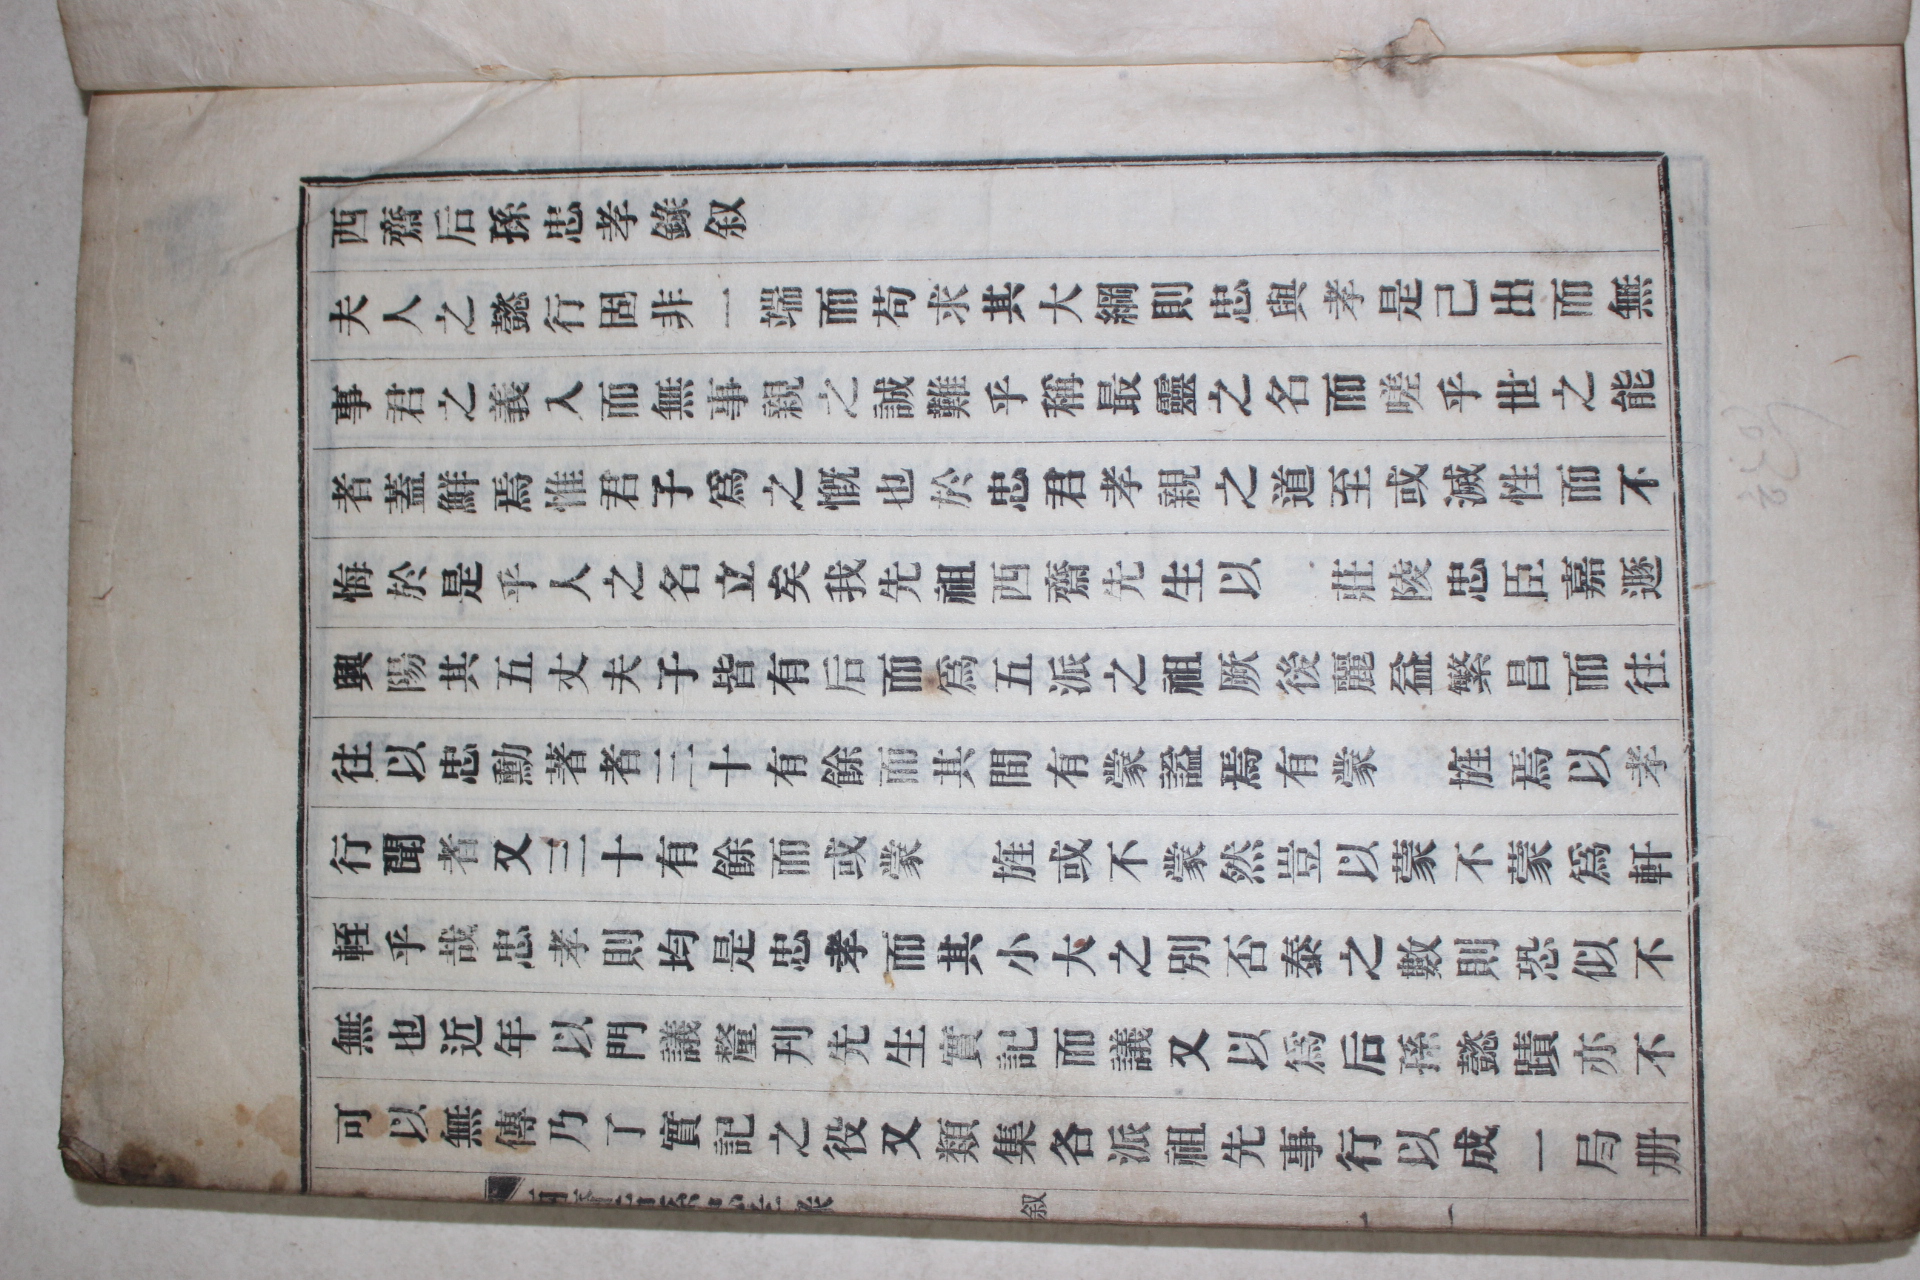 西齋后孫忠孝錄叙
夫人之懿行固非一端而苟求其大綱則忠與孝是己出而無
事君之義入而無事親之誠難乎稱最靈之名而嗟乎世之能
者蓋鮮焉惟君子爲之慨也於忠君孝親之道至或滅性而不
悔於是乎人之名立矣我先祖西齋先生以　莊陵忠臣嘉遯
興陽其五丈夫子皆有后而爲五派之祖厥後麗益繁昌而往
往以忠勳著者三十有餘而其間有蒙諡焉有蒙　旌焉以孝
行聞者又三十有餘而或蒙　旌或不蒙然豈以蒙不蒙爲軒
輊乎哉忠孝則均是忠孝而其小大之別否泰之數則恐似不
無也近年以門議釐刊先生實記而議又以爲后孫懿蹟亦不
可以無傳乃了實記之役又類集各派祖先事行以成一局册
西齋后孫忠孝錄
叙
一